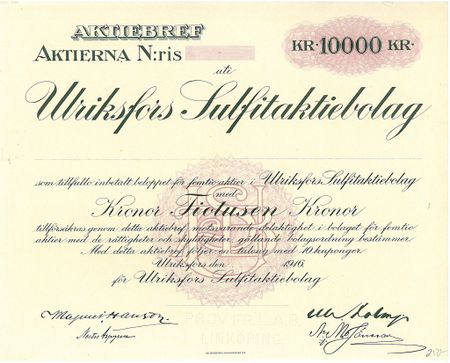 AKTIEBREF
AKTIERNA N:ris
KR·10000 KR·
uti
Ulriksfors Sulfitaktiebolag
som tillfullo inbetalt beloppet för femtio aktier i Ulriksfors Sulfitaktiebolag
med
Kronor Tiotusen Kronor
tillförsäkras genom detta aktiebref motsvarande delaktighet i bolaget för femtio
aktier med de rättigheter och skyldigheter, gällande bolagsordning bestämmer.
Med detta aktiebref följer en talong med 10 kuponger.
Ulriksfors den 1916.
för Ulriksfors Sulfitaktiebolag
PROVTRYCK
LINKÖPING
250